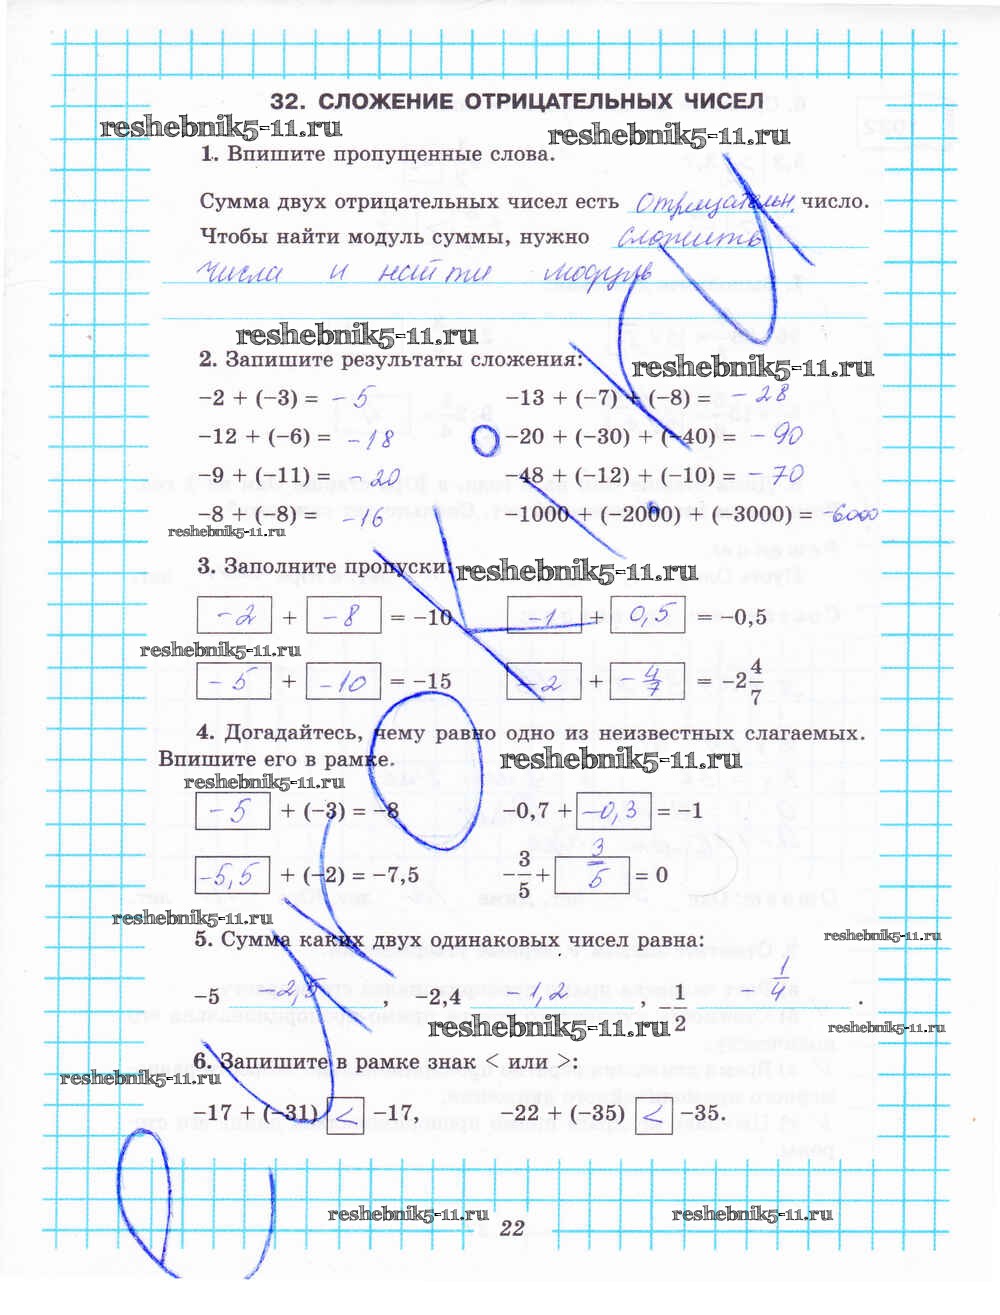 32. СЛОЖЕНИЕ ОТРИЦАТЕЛЬНЫХ ЧИСЕЛ
reshebnik5-11.ru reshebnik5-11.ru
1. Впишите пропущенные слова.
Сумма двух отрицательных чисел есть отрицательн. число.
Чтобы найти модуль суммы, нужно сложить
числа и найти модуль
reshebnik5-11.ru
2. Запишите результаты сложения:
reshebnik5-11.ru
−2 + (−3) = −5 −13 + (−7) + (−8) = −28
−12 + (−6) = −18 −20 + (−30) + (−40) = −90
−9 + (−11) = −20 −48 + (−12) + (−10) = −70
−8 + (−8) = −16 −1000 + (−2000) + (−3000) = −6000
reshebnik5-11.ru
3. Заполните пропуски:
reshebnik5-11.ru
−2 + −8 = −10 −1 + 0,5 = −0,5
reshebnik5-11.ru
−5 + −10 = −15 −2 + −4/7 = −2 4/7
4. Догадайтесь, чему равно одно из неизвестных слагаемых.
Впишите его в рамке.
reshebnik5-11.ru
reshebnik5-11.ru
−5 + (−3) = −8 −0,7 + −0,3 = −1
−5,5 + (−2) = −7,5 −3/5 + 3/5 = 0
reshebnik5-11.ru
5. Сумма каких двух одинаковых чисел равна:
reshebnik5-11.ru
−5 −2,5 , −2,4 −1,2 , −1/2 −1/4 .
reshebnik5-11.ru reshebnik5-11.ru
6. Запишите в рамке знак < или >:
reshebnik5-11.ru
−17 + (−31) < −17, −22 + (−35) < −35.
reshebnik5-11.ru reshebnik5-11.ru
22